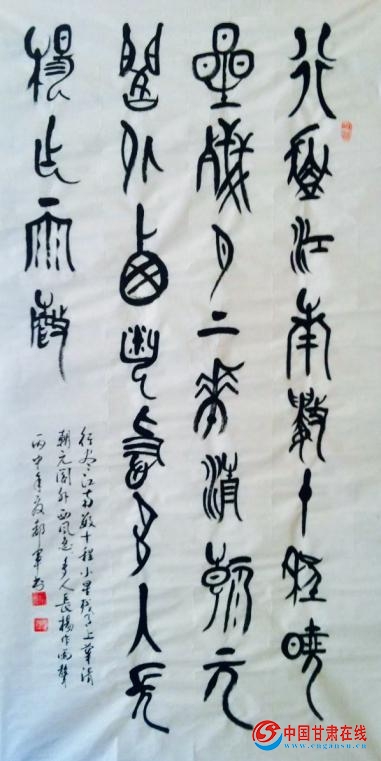 行盡江南數十程曉
星殘月上華清朝元
閣外西風急多人長
楊作雨聲
行尽江南数十程小星残月上華清
朝元閣外西风急多人長楊作雨聲
丙申年夏郝军书
中国甘肃在线
www.cngansu.cn